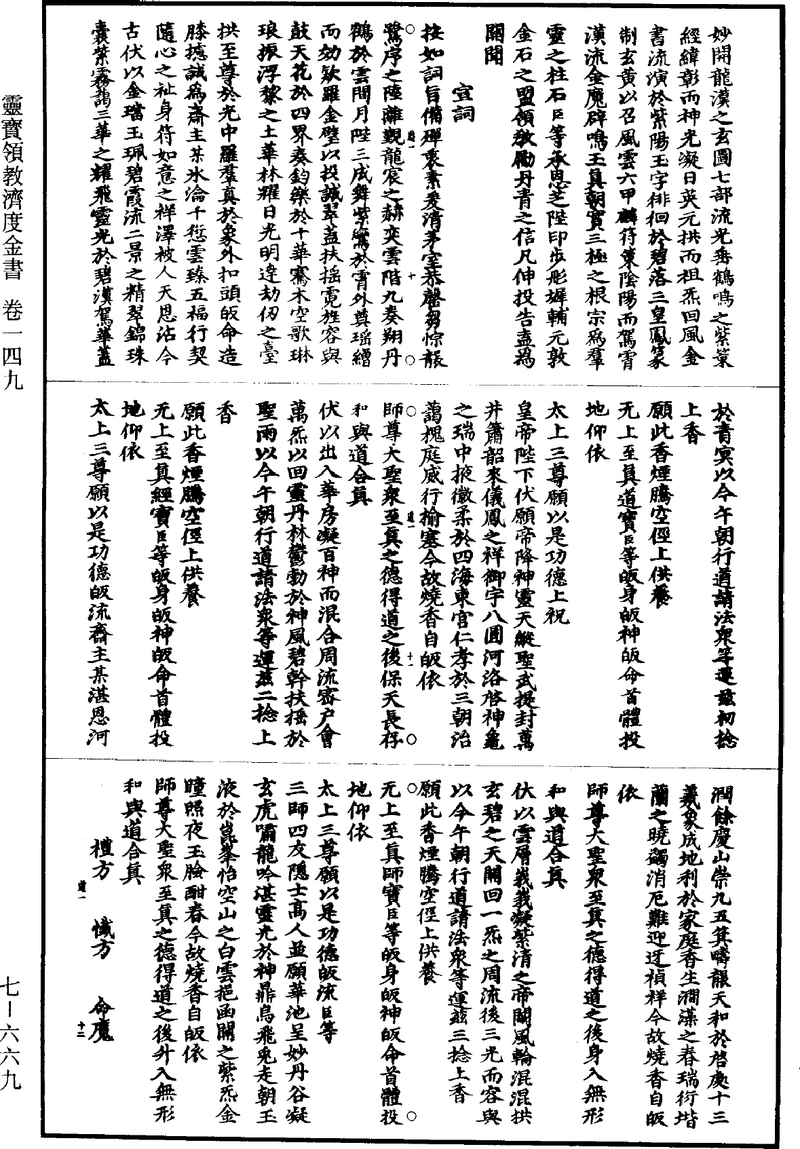 妙開龍漢之玄圖七部流光垂鶴鳴之紫策
經緯彰而神光凝日英元拱而祖炁回風金
書流演於紫陽玉字徘徊於碧落三皇鳳篆
制玄黃以召風雲六甲麟符策陰陽而駕霄
漢流金魔辟鳴玉真朝實三極之根宗為羣
靈之柱石臣等承恩芝陛印步彤墀輔元敦
金石之盟領教勵丹青之信凡伸投告盡為
關聞
宣詞
按如詞旨備殫衷素爰清茅室恭罄芻悰龍
鷺序之陸離觀龍宸之赫奕雲階九奏翔丹
鶴於雲間月陛三成舞紫鸞於霄外奠瑶繒
而効欵羅金璧以投誠翠蓋扶摇霓旌容與
鼓天花於四界奏鈞樂於十華騫木空歌琳
琅振浮黎之土華林耀日光明達劫仞之臺
拱至尊於光中羅羣真於象外扣頭皈命造
膝攄誠為齋主某氷淪千愆雲臻五福行契
隨心之祉身符如意之祥澤被人天恩沾今
古伏以金璫玉珮碧霞流二景之精翠錦珠
囊紫霧藹三華之耀飛靈光於碧漢駕華蓋
於青冥以今午朝行道請法衆等運茲初捻
上香
願此香煙騰空徑上供養
无上至真道寶臣等皈身皈神皈命首體投
地仰依
太上三尊願以是功德上祝
皇帝陛下伏願帝降神靈天縱聖武提封萬
井簫韶來儀鳳之祥御宇八圓河洛啓神龜
之瑞中掖徽柔於四海東宫仁孝於三朝治
藹槐庭威行榆塞今故燒香自皈依
師尊大聖衆至真之德得道之後保天長存
和與道合真
伏以出入華房凝百神而混合周流密户會
萬炁以回靈丹林鬱勃於神風碧幹扶摇於
聖雨以今午朝行道請法衆等運茲二捻上
香
願此香煙騰空徑上供養
无上至真經寶臣等皈身皈神皈命首體投
地仰依
太上三尊願以是功德皈流齋主某湛恩河
潤餘慶山崇九五箕疇龍天和於啓處十三
羲象成地利於家庭香生澗藻之春瑞衍堦
蘭之曉蠲消厄難迎迓禎祥今故燒香自皈
依
師尊大聖衆至真之德得道之後身入無形
和與道合真
伏以雲層峩峩凝紫清之帝闕風輪混混拱
玄碧之天關回一炁之周流後三光而容與
以今午朝行道請法衆等運茲三捻上香
願此香煙騰空徑上供養
无上至真師寶臣等皈身皈神皈命首體投
地仰依
太上三尊願以是功德皈流臣等
三師四友隱士高人並願華池呈妙丹谷凝
玄虎嘯龍吟湛靈光於神鼎烏飛兎走朝玉
液於崑峯怡空山之白雲挹函關之紫炁金
瞳照夜玉臉酣春今故燒香自皈依
師尊大聖衆至真之德得道之後外入無形
和與道合真
禮方　懺方　命魔
靈寶領教濟度金書　卷一四九
七－六六九